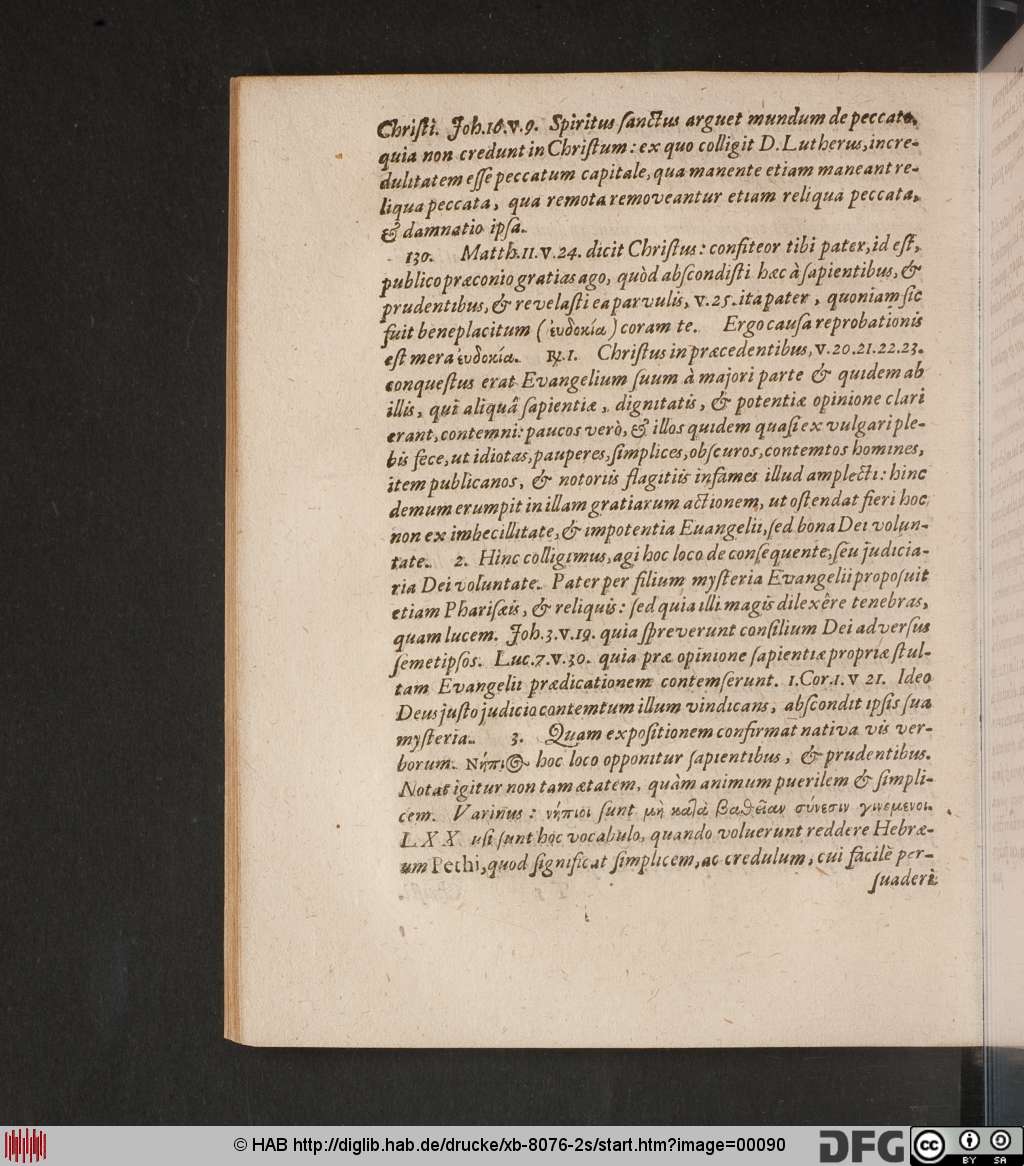 Christi. Joh.16.v.9. Spiritus sanctus arguet mundum de peccato,
quia non credunt in Christum: ex quo colligit D. Lutherus, incre-
dulitatem esse peccatum capitale, qua manente etiam maneant re-
liqua peccata, qua remota removeantur etiam reliqua peccata,
& damnatio ipsa.
130. Matth.11.v.24. dicit Christus: confiteor tibi pater, id est,
publico præconio gratias ago, quòd abscondisti hæc à sapientibus, &
prudentibus, & revelasti ea parvulis, v.25. ita pater, quoniam sic
fuit beneplacitum (ἐυδοκία) coram te. Ergo causa reprobationis
est mera ἐυδοκία. ℞.1. Christus in præcedentibus, v.20.21.22.23.
conquestus erat Evangelium suum à majori parte & quidem ab
illis, qui aliquâ sapientiæ, dignitatis, & potentiæ opinione clari
erant, contemni: paucos verò, & illos quidem quasi ex vulgari ple-
bis fece, ut idiotas, pauperes, simplices, obscuros, contemtos homines,
item publicanos, & notoriis flagitiis infames illud amplecti: hinc
demum erumpit in illam gratiarum actionem, ut ostendat fieri hoc
non ex imbecillitate, & impotentia Euangelii, sed bona Dei volun-
tate. 2. Hinc colligimus, agi hoc loco de consequente, seu judicia-
ria Dei voluntate. Pater per filium mysteria Evangelii proposuit
etiam Pharisæis, & reliquis: sed quia illi magis dilexêre tenebras,
quam lucem. Joh.3.v.19. quia spreverunt consilium Dei adversus
semetipsos. Luc.7.v.30. quia præ opinione sapientiæ propriæ stul-
tam Evangelii prædicationem contemserunt. 1.Cor.1.v 21. Ideo
Deus justo judicio contemtum illum vindicans, abscondit ipsis sua
mysteria. 3. Quam expositionem confirmat nativa vis ver-
borum. Νήπιος hoc loco opponitur sapientibus, & prudentibus.
Notat igitur non tam ætatem, quàm animum puerilem & simpli-
cem. Varinus: νήπιοι sunt μὴ καλὰ βαθεῖαν σύνεσιν γινεμενοι.
LXX usi sunt hoc vocabulo, quando voluerunt reddere Hebræ-
um Pethi, quod significat simplicem, ac credulum, cui facilè per-
suaderi
© HAB http://diglib.hab.de/drucke/xb-8076-2s/start.htm?image=00090
DFG
cc
BY SA